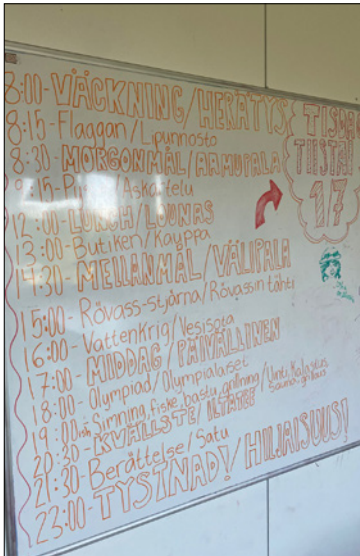 8:00-VÄCKNING/HERÄTYS
8:15-Flaggan/Lipunnosto
8:30-MORGONMÅL/AAMUPALA
9:15-/Askartelu
12:00-LUNCH/LOUNAS
13:00-Butiken/Kauppa
14:30-MELLANMÅL/VÄLIPALA
15:00-Rövass-stjärna/Rövassin tähti
16:00-Vattenkrig/Vesisota
17:00-MIDDAG/PÄIVÄLLINEN
18:00-Olympiad/Olympialaiset
19:00ish Simning, fiske, bastu, grillning/Uinti, Kalastus,
sauna, grillaus
20:30-KVÄLLSTE/ILTATEE
21:30-Berättelse/Satu
23:00-TYSTNAD!/HILJAISUUS!
TISDAG
TIISTAI
17